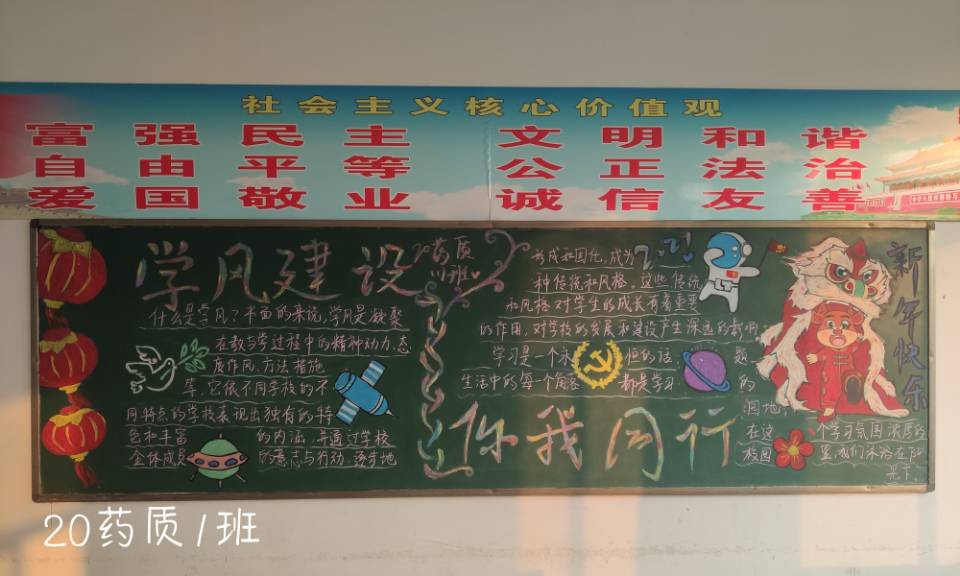 社会主义核心价值观
富强民主 文明和谐
自由平等 公正法治
爱国敬业 诚信友善
学风建设
20药质
1班
什么是学风?本面的来说,学风是凝聚
在教与学过程中的精神动力、态
度作风、方法措施
等,它依不同学校的不
同特点的学校表现出独有的特
色和丰富的内涵,并通过学校
全体成员的意志与行动,逐步地
形成和固化,成为
一种传统和风格。这些传统
和风格对学生的成长有着重要
的作用,对学校的发展和建设产生深远的影响。
学习是一个永恒的话题
生活中的每个角落都是学习的
洞地,
在这个学习氛围浓厚的
校园里,我们沐浴在阳
光下。
你我同行
新年快乐
20药质1班